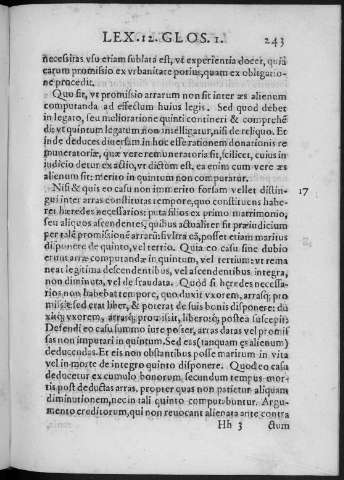 LEX. 12. GLOS. 1. 243
necessitas vsu etiam sublata est, vt experientia docet, quū
earum promissio ex vrbanitate potius, quam ex obligatio-
ne procedit.
Quo fit, vt promissio arrarum non sit inter æs alienum
computanda ad effectum huius legis. Sed quod debet
in legato, seu melioratione quinti contineri & comprehē
di: vt quintum legatum non intelligatur, nisi de reliquo. Et
inde deduces diuersum in hoc esse rationem donationis re
muneratoriæ, quæ vere remuneratoria sit, scilicet, cuius in
iudicio detur ex actio, vt dictum est, ea enim cum vere æs
alienum sit: merito in quintum non computatur.
Nisi & quis eo casu non immerito forsam vellet distin- 17
gui inter arras constitutas tempore, quo constituens habe-
ret hæredes necessarios: puta filios ex primo matrimonio,
seu aliquos ascendentes, quibus actualiter fit præiudicium
per talē promissionē arrarū: si vltra eā, posset etiam maritus
disponere de quinto, vel tertio. Quia eo casu sine dubio
erunt arræ computandæ in quintum, vel tertium: vt rema
neat legitima descendentibus, vel ascendentibus integra,
non diminuta, vel defraudata. Quód si heredes necessa-
rios non habebat tempore, quo duxit vxorem, arrasq; pro
misit: sed erat liber, & poterat de suis bonis disponere: du
xitq; vxorem, arrasq; promisit, liberosq; postea suscepit:
Defendi eo casu summo iure posset, arras datas vel promis
sas non imputari in quintum. Sed eis (tanquam es alienum)
deducendas. Et eis non obstantibus posse maritum in vita
vel in morte de integro quinto disponere. Quod eo casu
deducetur ex cumulo bonorum, secundum tempus mor-
tis post deductas arras, propter quas non patietur aliquam
diminutionem, nec in tali quinto computabuntur. Argu-
mento creditorum, qui non reuocant alienata ante contra
Hh 3 ctum